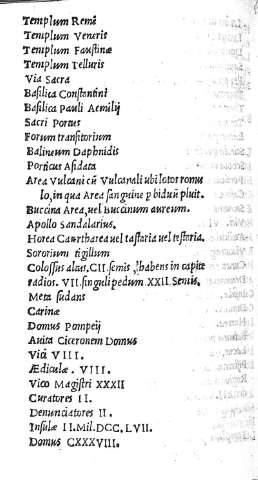 Templum Remi
Templum Veneris
Templum Faustinæ
Templum Telluris
Via Sacra
Basilica Constantini
Basilica Pauli Aemilij
Sacri Portus
Forum transitorium
Balineum Daphnidis
Porticus Absidata
Area Vulcani cũ Vulcanali ubi lotor romu
lo, in qua Area sanguine p biduũ pluit.
Buccina Area, uel Buccinum aureum.
Apollo Sandalarius.
Horea Caurtharea uel tastaria uel testaria.
Sororium tigillum
Colossus altus. CII. semis, habens in capite
radios. VII. singuli pedum XXII. Semis.
Meta sudans
Carinæ
Domus Pompeij
Auita Ciceronem Domus
Vici VIII.
Ædiculæ. VIII.
Vico Magistri XXXII
Curatores II.
Denunciatores II.
Insulæ II. Mil. DCC. LVII.
Domus CXXXVIII.